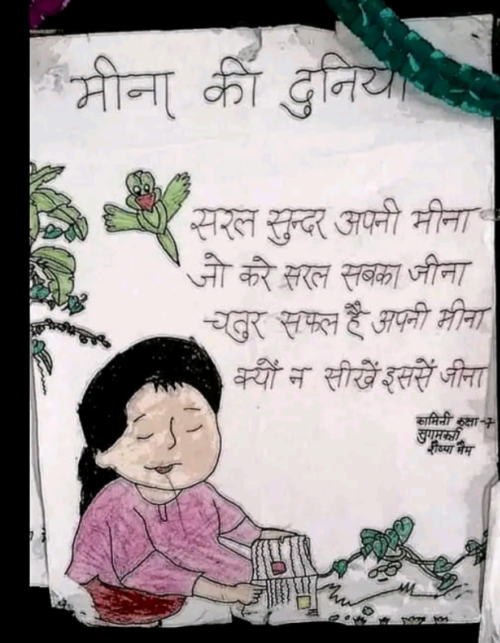 मीना की दुनिया
सरल सुन्दर अपनी मीना
जो करे सरल सबका जीना
चतुर सफल है अपनी मीना
क्यों न सीखें इससें जीना
कामिनी कक्षा-7
सुगमकर्ता
मैम